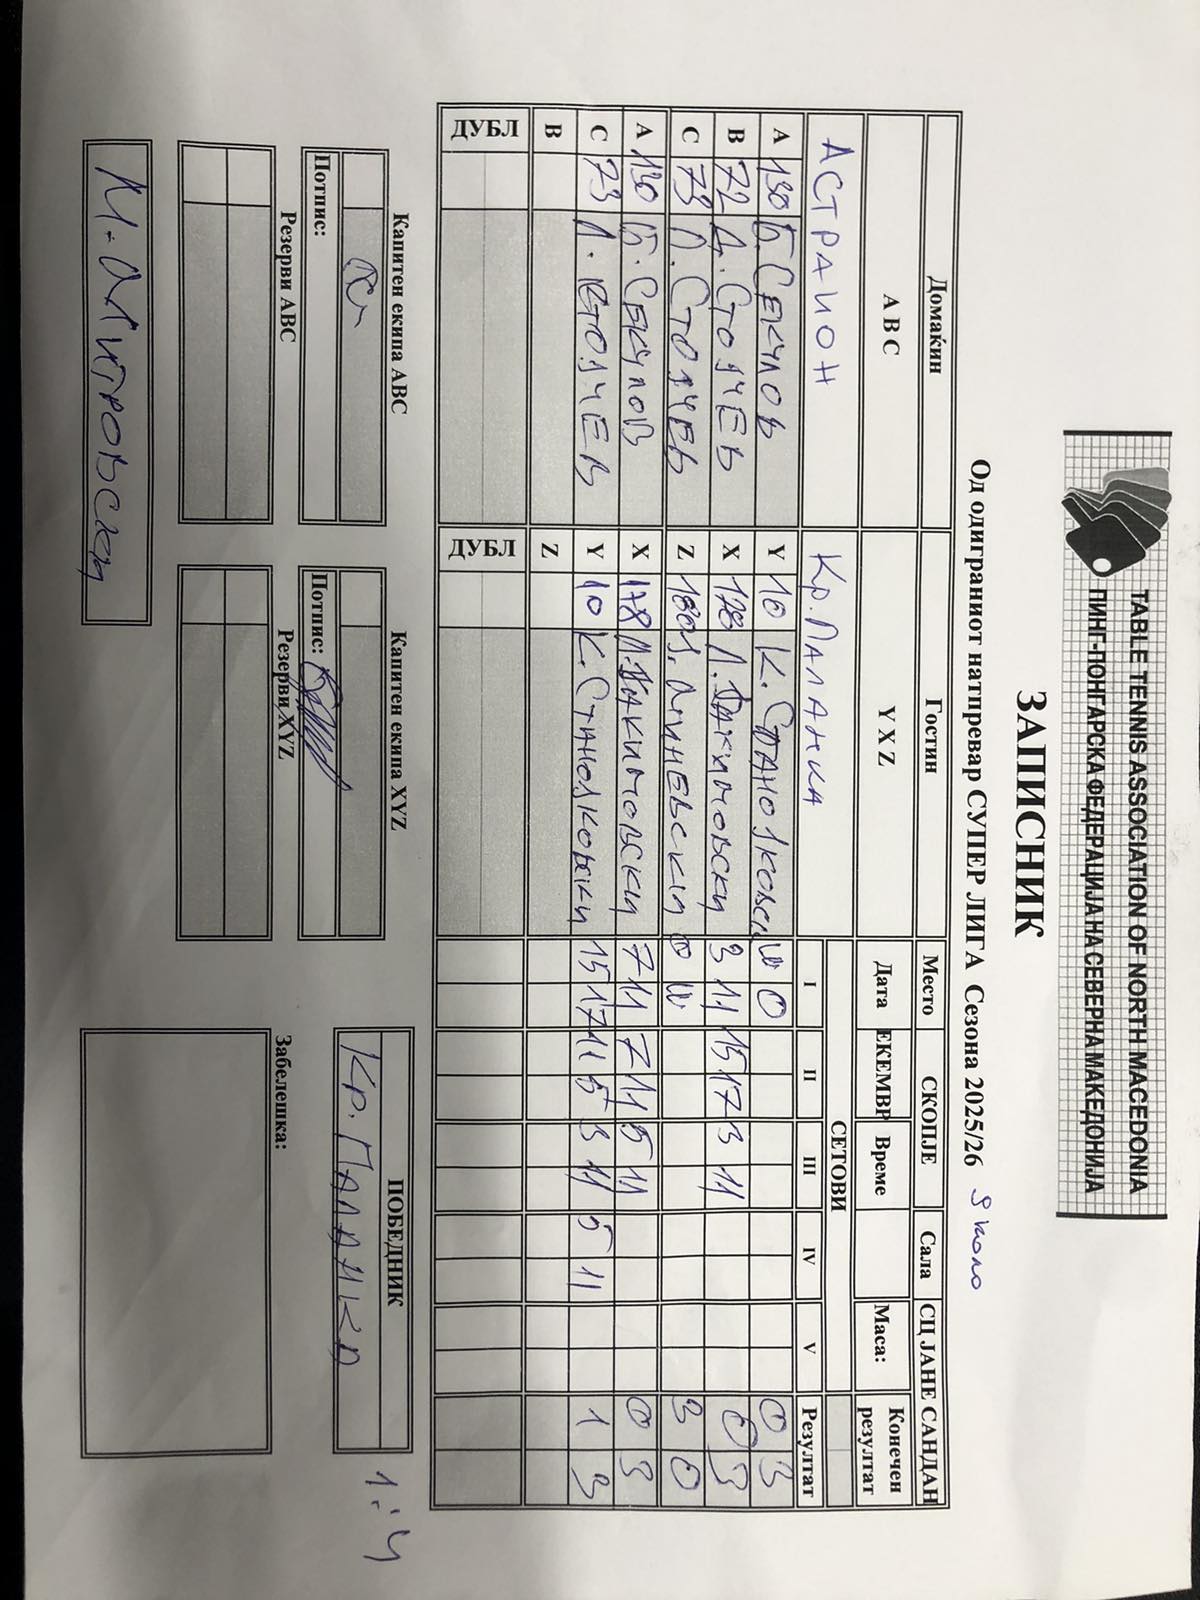 TABLE TENNIS ASSOCIATION OF NORTH MACEDONIA
ПИНГ-ПОНГАРСКА ФЕДЕРАЦИЈА НА СЕВЕРНА МАКЕДОНИЈА
ЗАПИСНИК
Од одиграниот натпревар СУПЕР ЛИГА Сезона 2025/26 9 коло
Домаќин Гостин Место СКОПЈЕ Сала СЦ ЈАНЕ САНДАН
A B C Y X Z Дата ЕКЕМВР Време Маса: Конечен резултат
АСТРАИОН Кр. ПАЛАНКА СЕТОВИ
I II III IV V Резултат
A 130 Б. СЕКУЛОВ Y 10 К. W 0 0 3
B 72 Д. СТОЈЧЕВ X 178 Л. ЈАКИМОВСКИ 3 11 15 17 3 11 0 3
C 73 Л. СТОЈЧЕВ Z 180 0 W 3 0
A 130 Б. СЕКУЛОВ X 178 Л. ЈАКИМОВСКИ 7 11 7 11 5 11 0 3
C 73 Л. СТОЈЧЕВ Y 10 К. 15 17 11 5 3 11 5 11 1 3
B Z
ДУБЛ ДУБЛ
Капитен екипа ABC Капитен екипа XYZ ПОБЕДНИК
Потпис: Потпис: Кр. ПАЛАНКА 1:4
Резерви ABC Резерви XYZ Забелешка:
М. МИТРОВСКИ